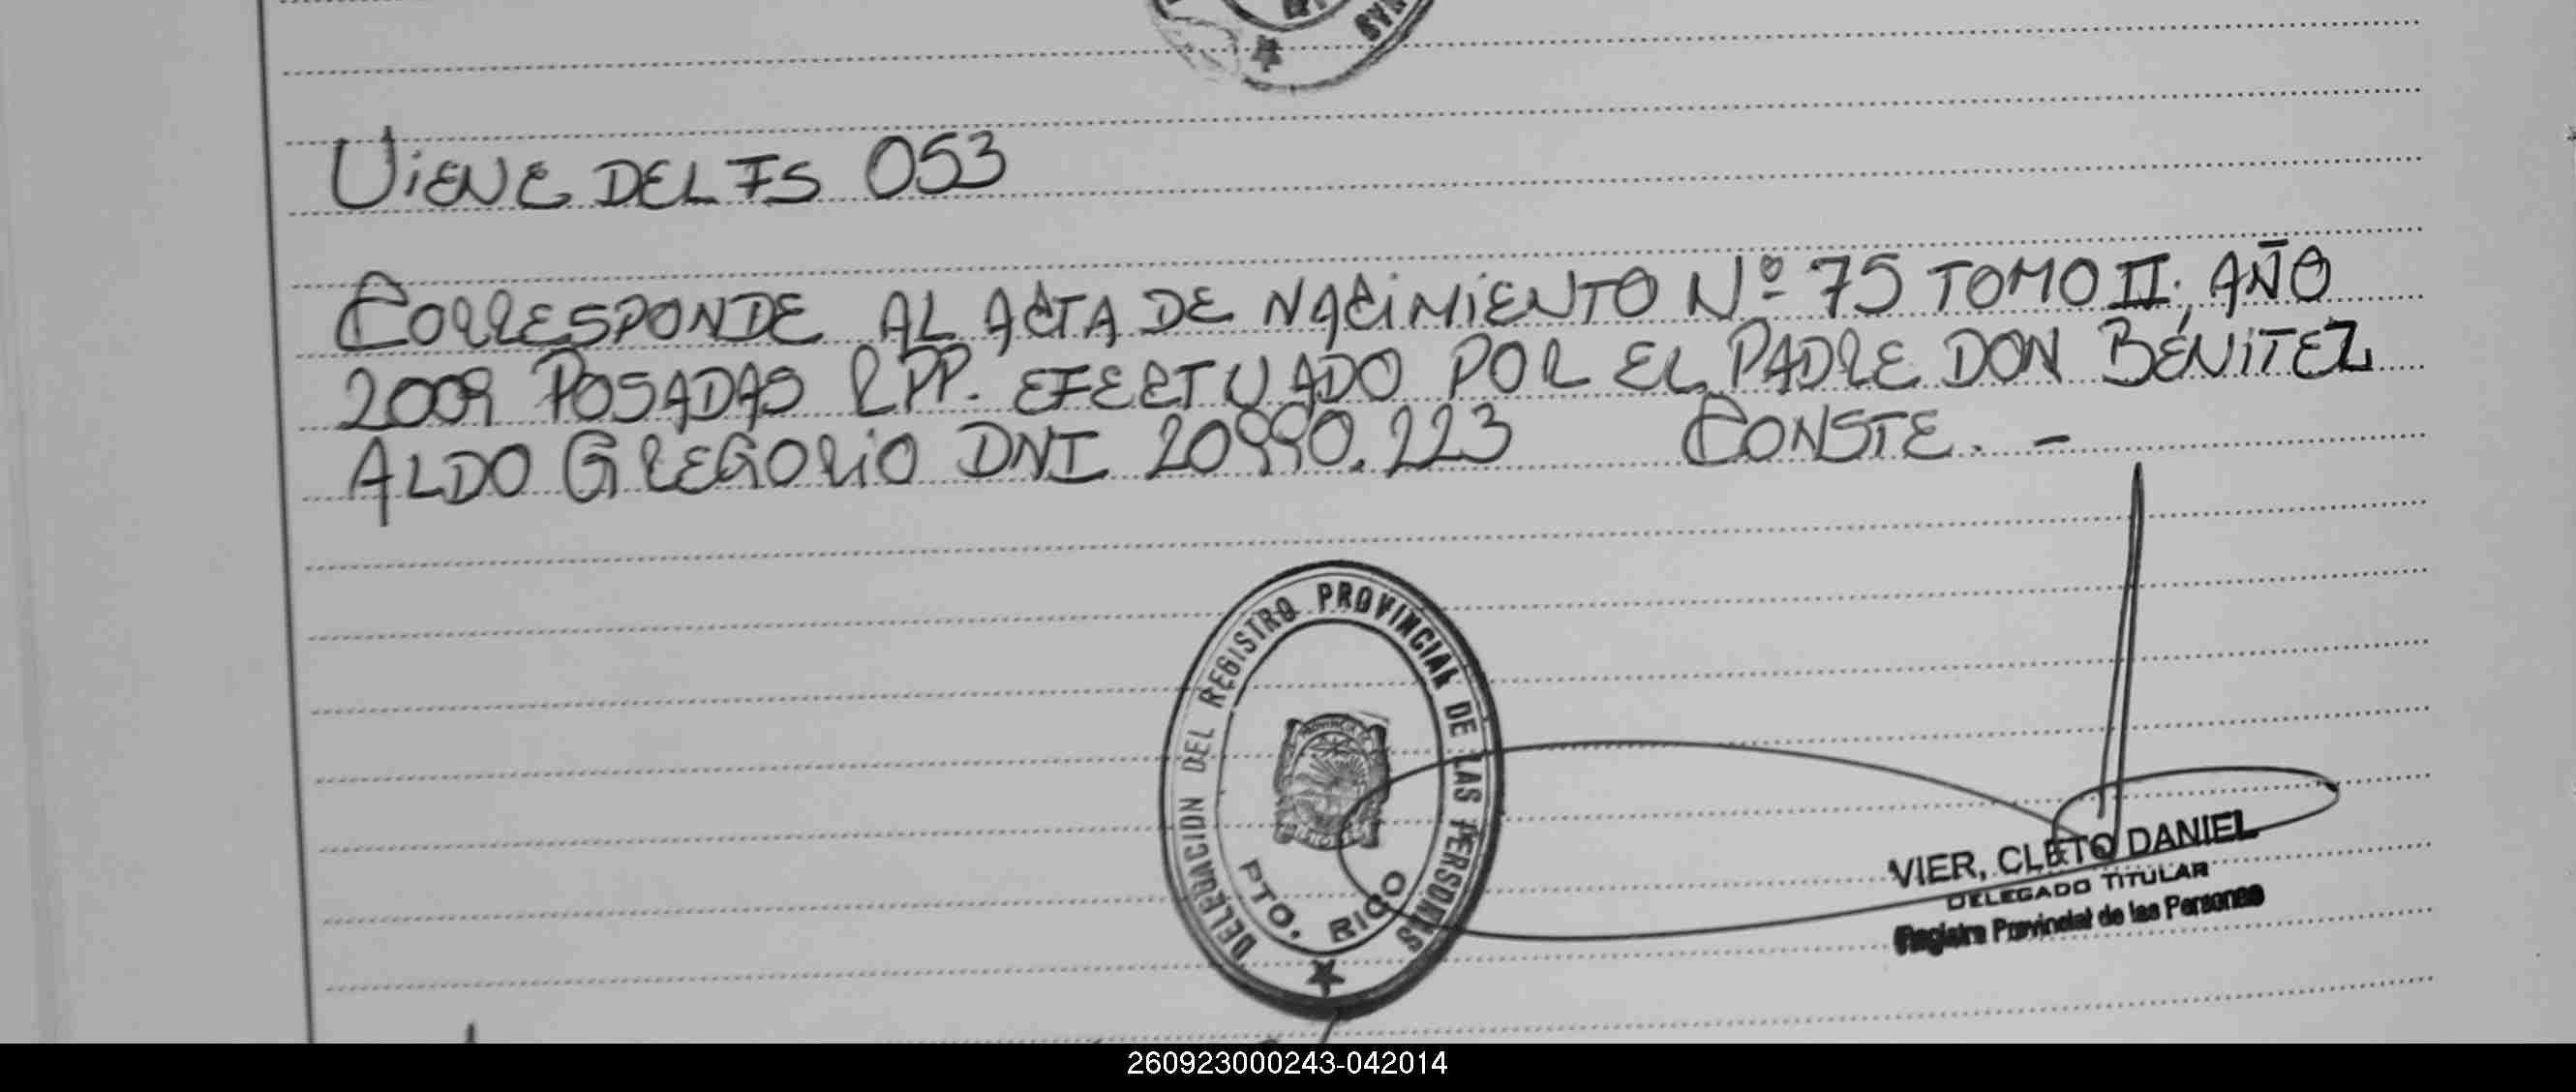 VIENE DEL FS 053
CORRESPONDE AL ACTA DE NACIMIENTO Nº 75 TOMO II, AÑO
2009 POSADAS RPP. EFECTUADO POR EL PADRE DON BENITEZ
ALDO GREGORIO DNI 20990.223 CONSTE. -
DELEGACION DEL REGISTRO PROVINCIAL DE LAS PERSONAS
PTO. RICO
VIER, CLETO DANIEL
DELEGADO TITULAR
Registro Provincial de las Personas
260923000243-042014